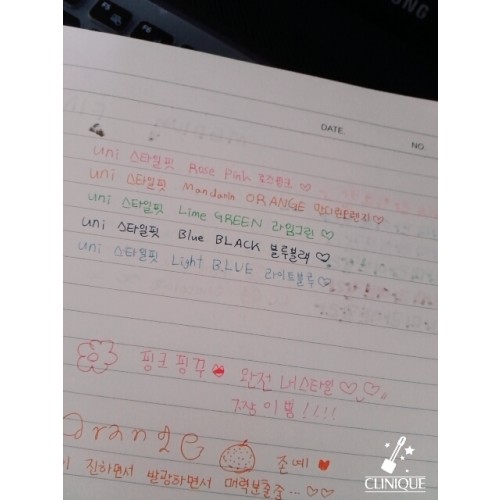 DATE. NO
uni 스타일핏 Rose Pink 로즈핑크 ♡
uni 스타일핏 Mandarin ORANGE 만다린오렌지 ♡
uni 스타일핏 Lime GREEN 라임그린 ♡
uni 스타일핏 Blue BLACK 블루블랙 ♡
uni 스타일핏 Light BLUE 라이트블루 ♡
핑크핑꾸 ♥ 완전 내스타일 ♡♡
짱이쁨!!!!
Orange 존예 ♥
진하면서 발랄하면서 매력분출중... ♡♡
CLINIQUE